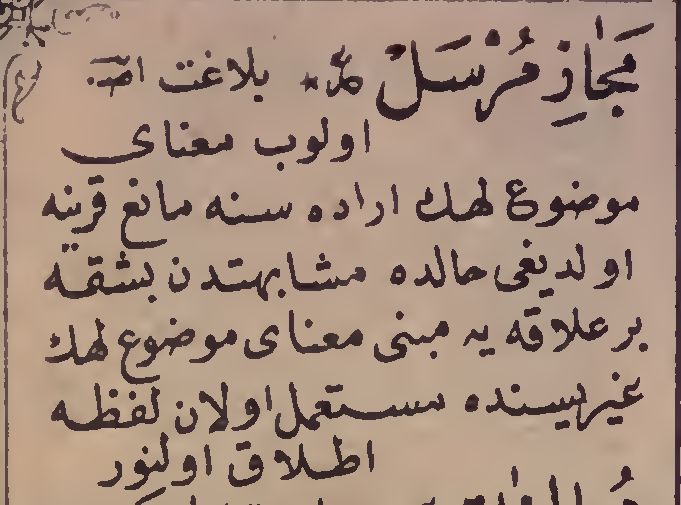 مَجَازِ مُرْسَلْ * بلاغت
اولوب معنای
موضوع لهك اراده سنه مانع قرینه
اولدیغی حالده مشابهتدن بشقه
بر علاقه یه مبنی معنای موضوع لهك
غیریسنده مستعمل اولان لفظه
اطلاق اولنور